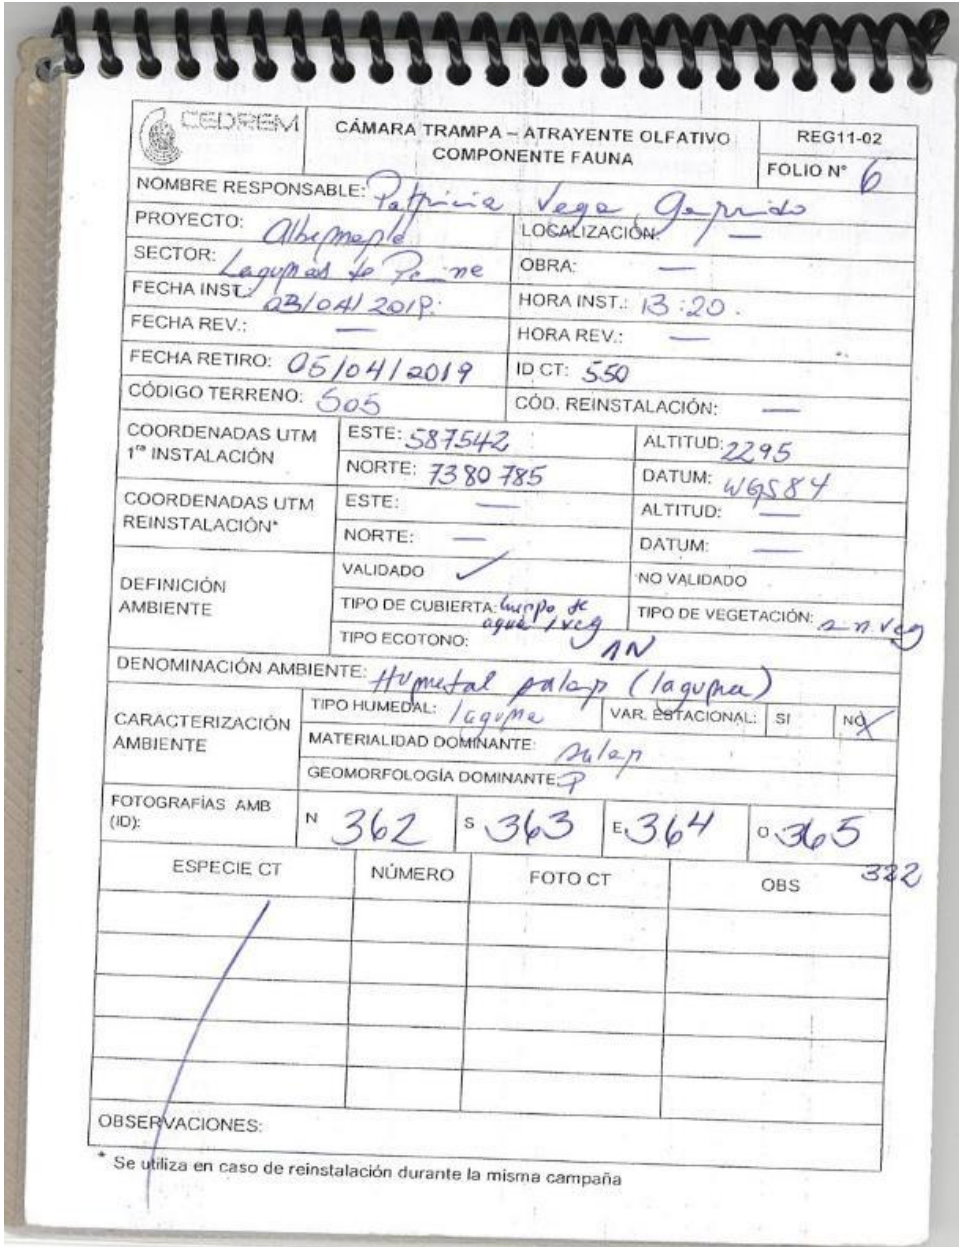 CEDREM
CÁMARA TRAMPA – ATRAYENTE OLFATIVO
COMPONENTE FAUNA
REG11-02
FOLIO N° 6
NOMBRE RESPONSABLE: Patricia Vega Garrido
PROYECTO: Albemarle
LOCALIZACIÓN: —
SECTOR: Lagunas de
OBRA: —
FECHA INST.: 03/04/2019.
HORA INST.: 13:20.
FECHA REV.: —
HORA REV.: —
FECHA RETIRO: 05/04/2019
ID CT: 550
CÓDIGO TERRENO: S05
CÓD. REINSTALACIÓN: —
COORDENADAS UTM
1ra INSTALACIÓN
ESTE: 587542
ALTITUD: 2295
NORTE: 7380785
DATUM: WGS84
COORDENADAS UTM
REINSTALACIÓN*
ESTE: —
ALTITUD: —
NORTE: —
DATUM: —
DEFINICIÓN
AMBIENTE
VALIDADO ✓
NO VALIDADO
TIPO DE CUBIERTA: Cuerpo de
agua / veg
TIPO DE VEGETACIÓN: sin veg
TIPO ECOTONO: 1N
DENOMINACIÓN AMBIENTE: Humedal salar (laguna)
CARACTERIZACIÓN
AMBIENTE
TIPO HUMEDAL: laguna
VAR. ESTACIONAL: SI NO X
MATERIALIDAD DOMINANTE: salar
GEOMORFOLOGÍA DOMINANTE: P
FOTOGRAFÍAS AMB
(ID):
N 362 S 363 E 364 O 365
322
ESPECIE CT NÚMERO FOTO CT OBS
OBSERVACIONES:
* Se utiliza en caso de reinstalación durante la misma campaña